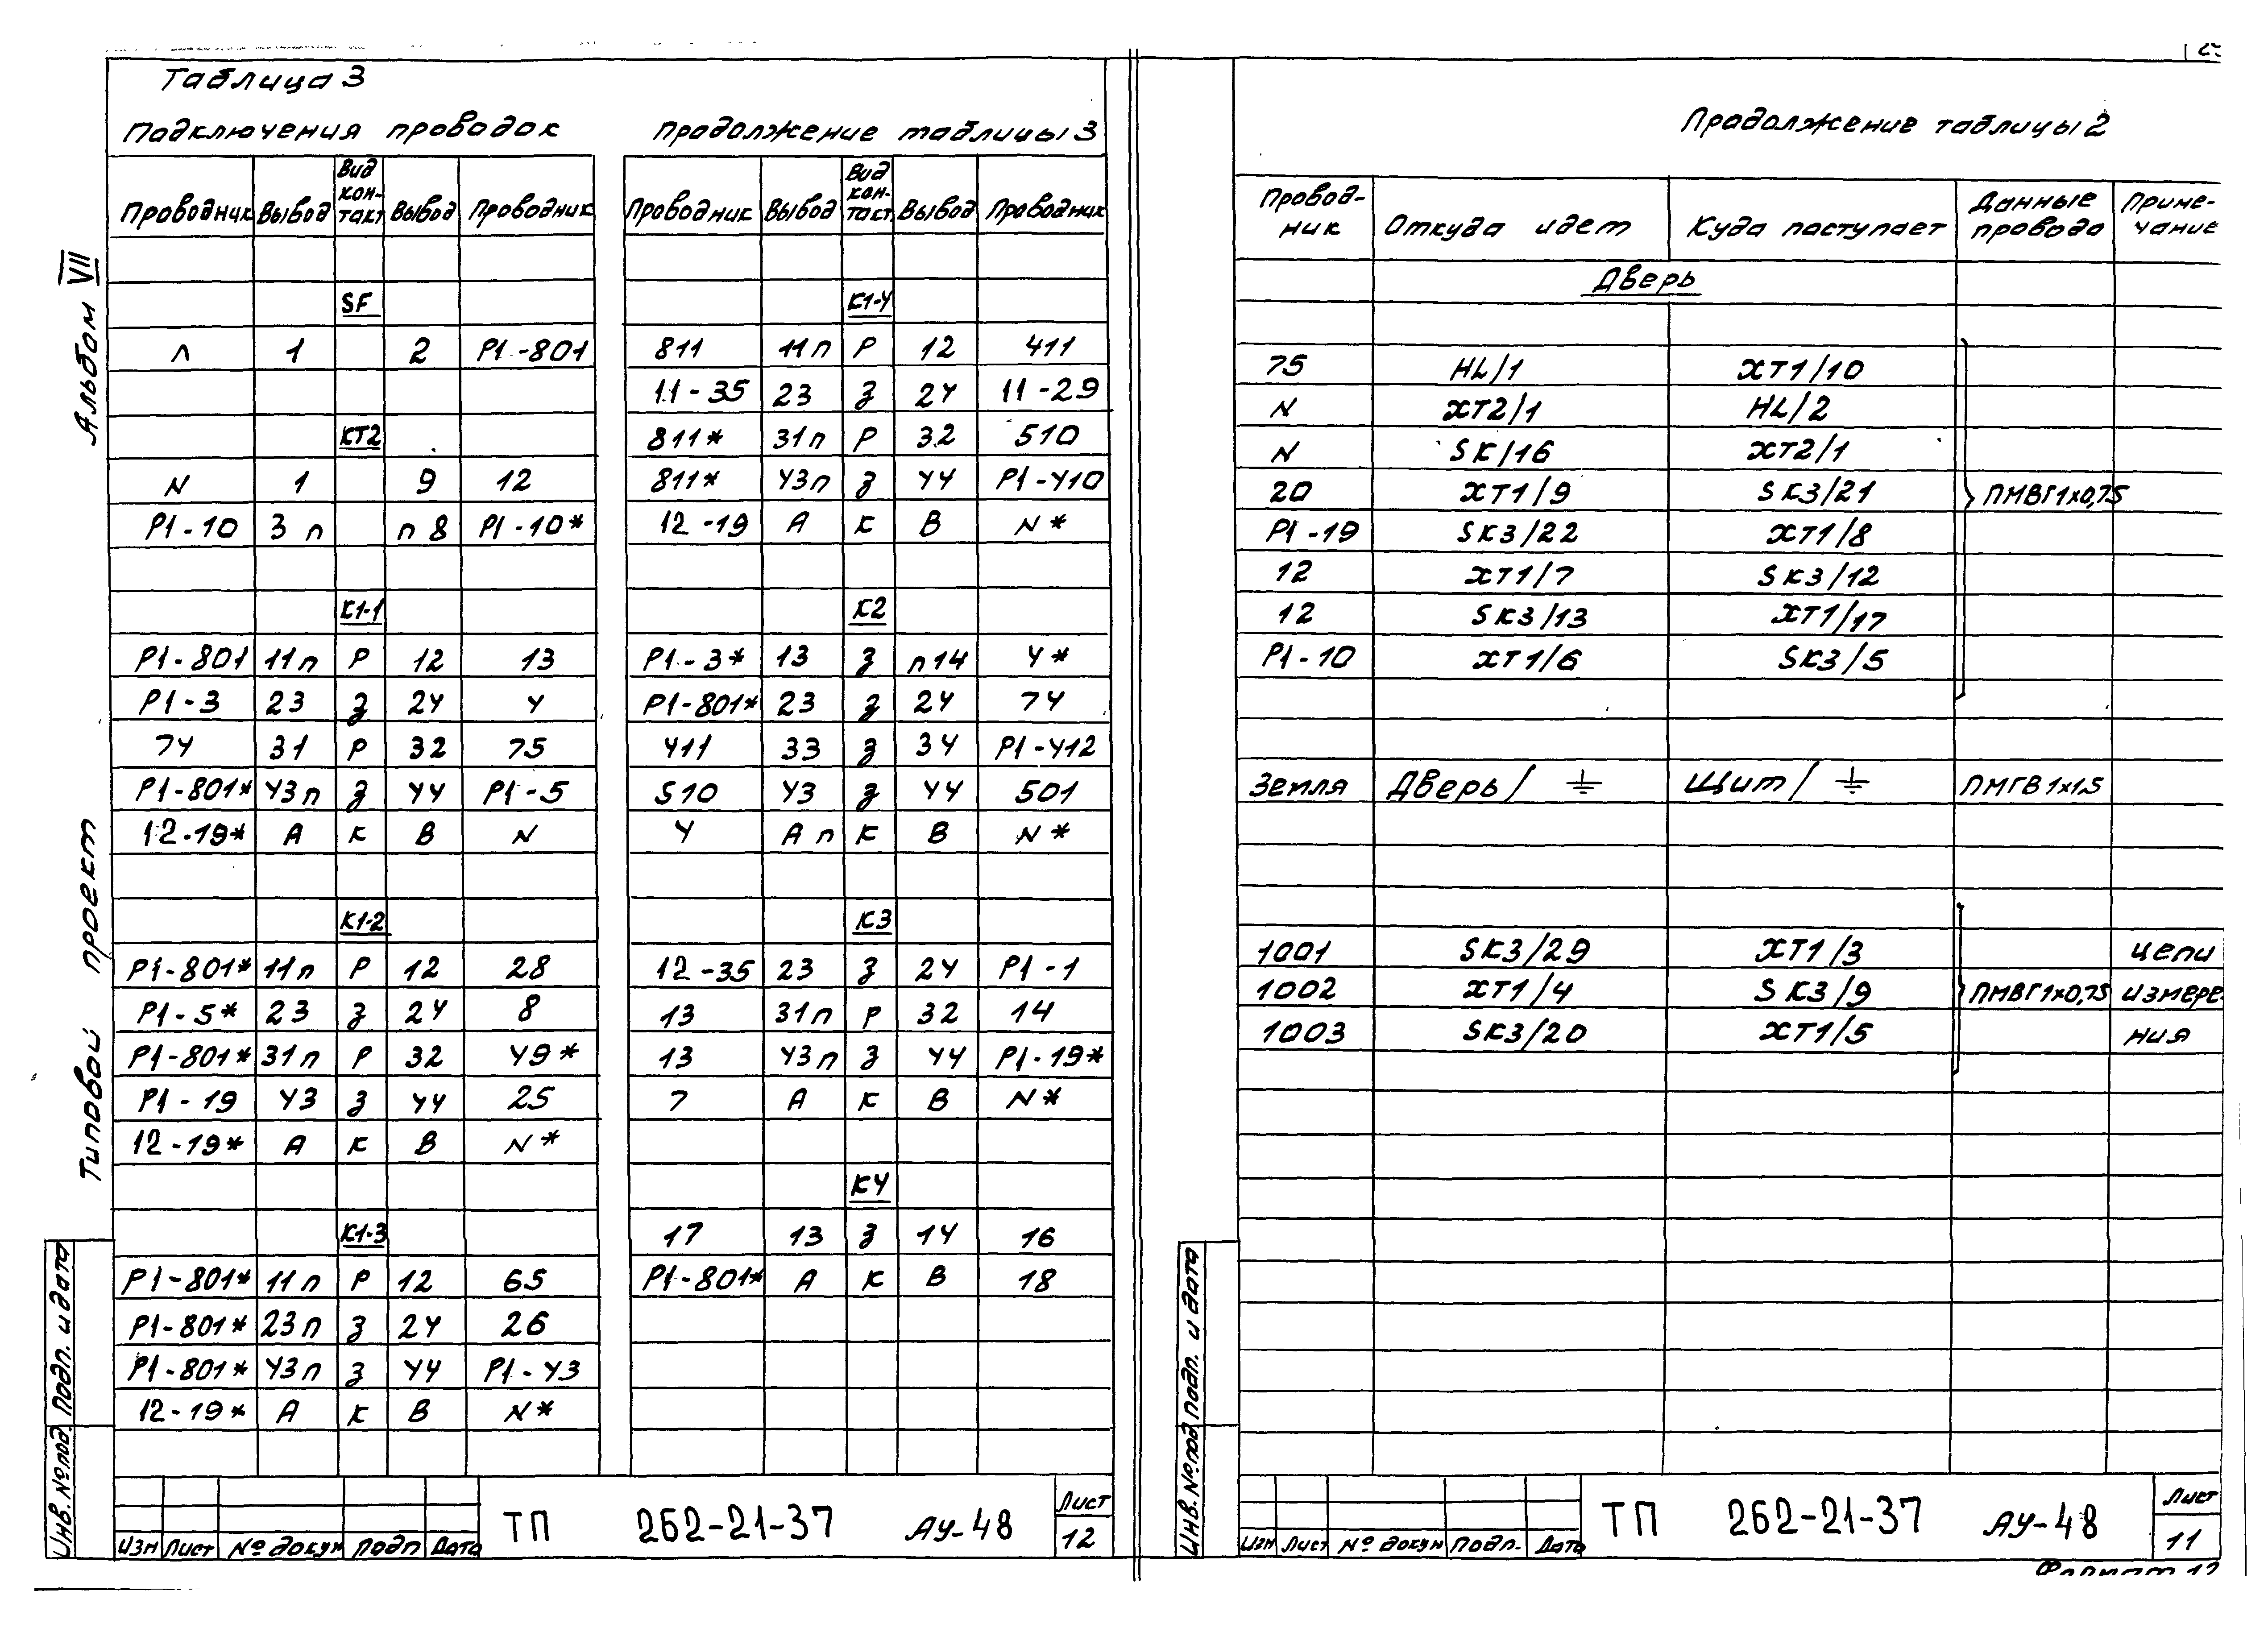 Таблица 3
Подключения проводок
Проводник Вывод Вид кон-такт Вывод Проводник
SF
Л 1 2 Р1-801
КТ2
N 1 9 12
Р1-10 3 п п 8 Р1-10*
К1-1
Р1-801 11п Р 12 13
Р1-3 23 З 24 4
74 31 Р 32 75
Р1-801* 43п З 44 Р1-5
12-19* А К В N
К1-2
Р1-801* 11п Р 12 28
Р1-5* 23 З 24 8
Р1-801* 31п Р 32 49*
Р1-19 43 З 44 25
12-19* А К В N*
К1-3
Р1-801* 11п Р 12 65
Р1-801* 23п З 24 26
Р1-801* 43п З 44 Р1-43
12-19* А К В N*
Продолжение таблицы 3
Проводник Вывод Вид кон-такт. Вывод Проводник
К1-4
811 11п Р 12 411
11-35 23 З 24 11-29
811* 31п Р 32 510
811* 43п З 44 Р1-410
12-19 А К В N*
К2
Р1-3* 13 З п14 4*
Р1-801* 23 З 24 74
411 33 З 34 Р1-412
510 43 З 44 501
4 А п К В N*
К3
12-35 23 З 24 Р1-1
13 31п Р 32 14
13 43п З 44 Р1-19*
7 А К В N*
К4
17 13 З 14 16
Р1-801* А К В 18
Альбом VII
Типовой проект
Инв. № подл. Подп. и дата
Изм Лист № докум Подп Дата
ТП 262-21-37 АУ-48
Лист
12
Продолжение таблицы 2
Провод-ник Откуда идет Куда поступает Данные провода Приме-чание
Дверь
75 HL/1 ХТ1/10
N ХТ2/1 HL/2
N SK/16 ХТ2/1
20 ХТ1/9 SK3/21 ПМВГ1х0,75
Р1-19 SK3/22 ХТ1/8
12 ХТ1/7 SK3/12
12 SK3/13 ХТ1/17
Р1-10 ХТ1/6 SK3/5
Земля Дверь/ ⏚ Щит/ ⏚ ПМГВ1х1,5
1001 SK3/29 ХТ1/3 цепи
1002 ХТ1/4 SK3/9 ПМВГ1х0,75 измере-
1003 SK3/20 ХТ1/5 ния
Инв. № подл Подп. и дата
Изм Лист № докум Подп. Дата
ТП 262-21-37 АУ-48
Лист
11
Формат 12